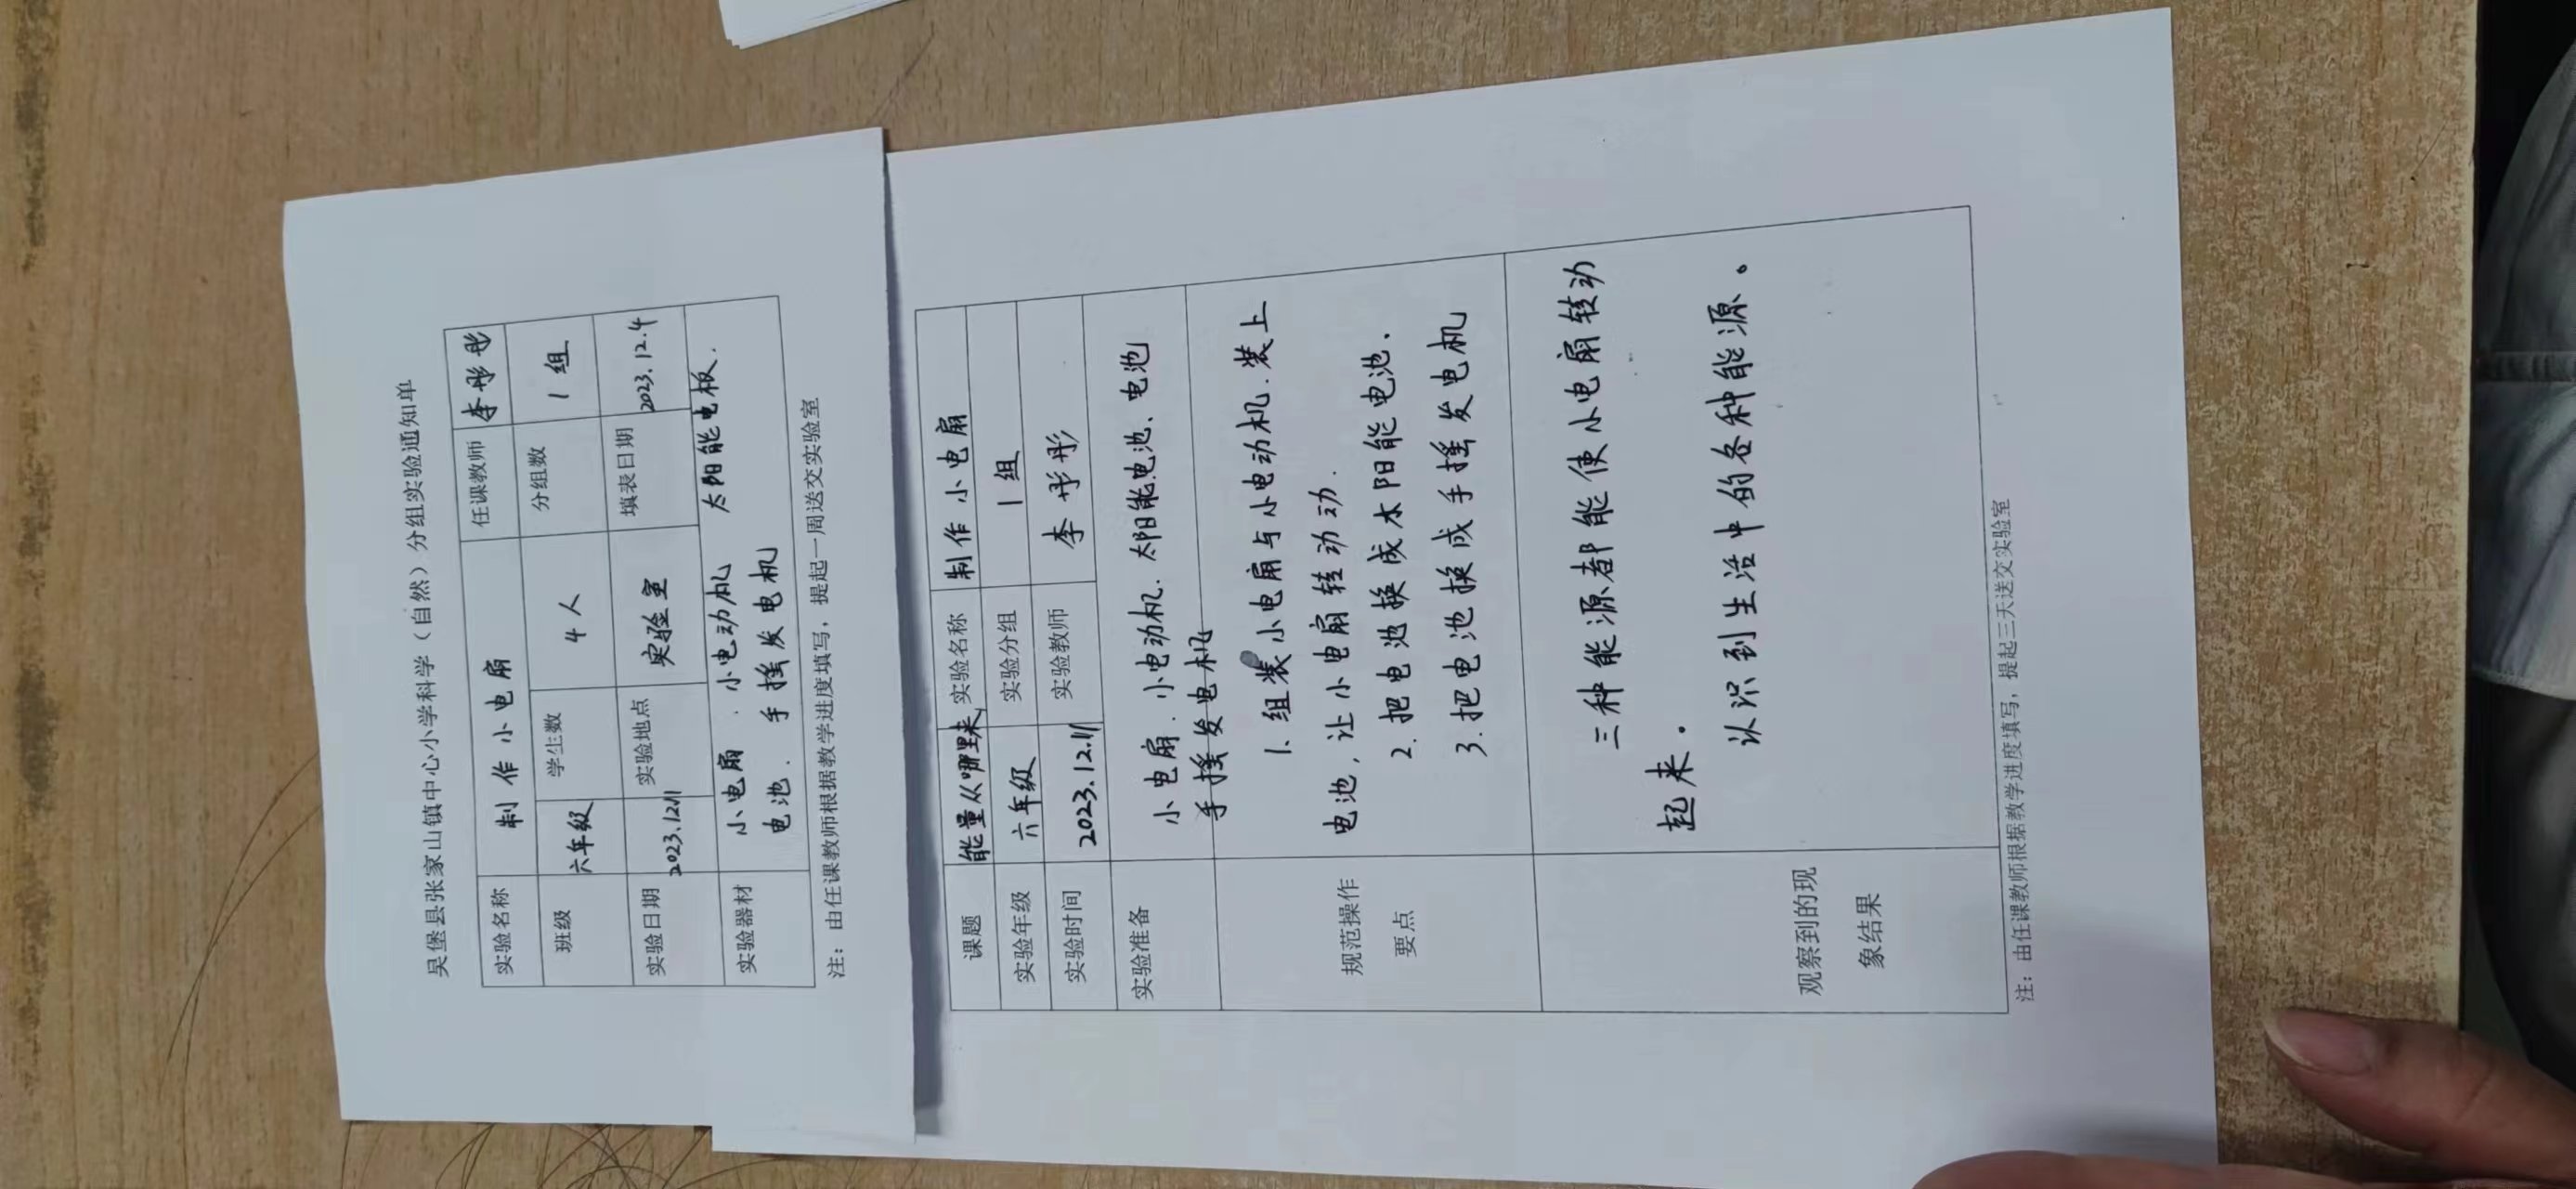 吴堡县张家山镇中心小学科学（自然）分组实验通知单
实验名称 制作小电扇 任课教师 李彤彤
班级 六年级 学生数 4人 分组数 1组
实验日期 2023.12.11 实验地点 实验室 填表日期 2023.12.4
实验器材 小电扇．小电动机 太阳能电板．
电池．手摇发电机
注：由任课教师根据教学进度填写，提起一周送交实验室
课题 能量从哪里来 实验名称 制作小电扇
实验年级 六年级 实验分组 1组
实验时间 2023.12.11 实验教师 李彤彤
实验准备 小电扇．小电动机．太阳能电池、电池
手摇发电机
规范操作
要点
1. 组装小电扇与小电动机．装上
电池，让小电扇转动动．
2. 把电池换成太阳能电池．
3. 把电池换成手摇发电机
观察到的现
象结果
三种能源者都能使小电扇转动
起来。
认识到生活中的各种能源。
注：由任课教师根据教学进度填写，提起三天送交实验室